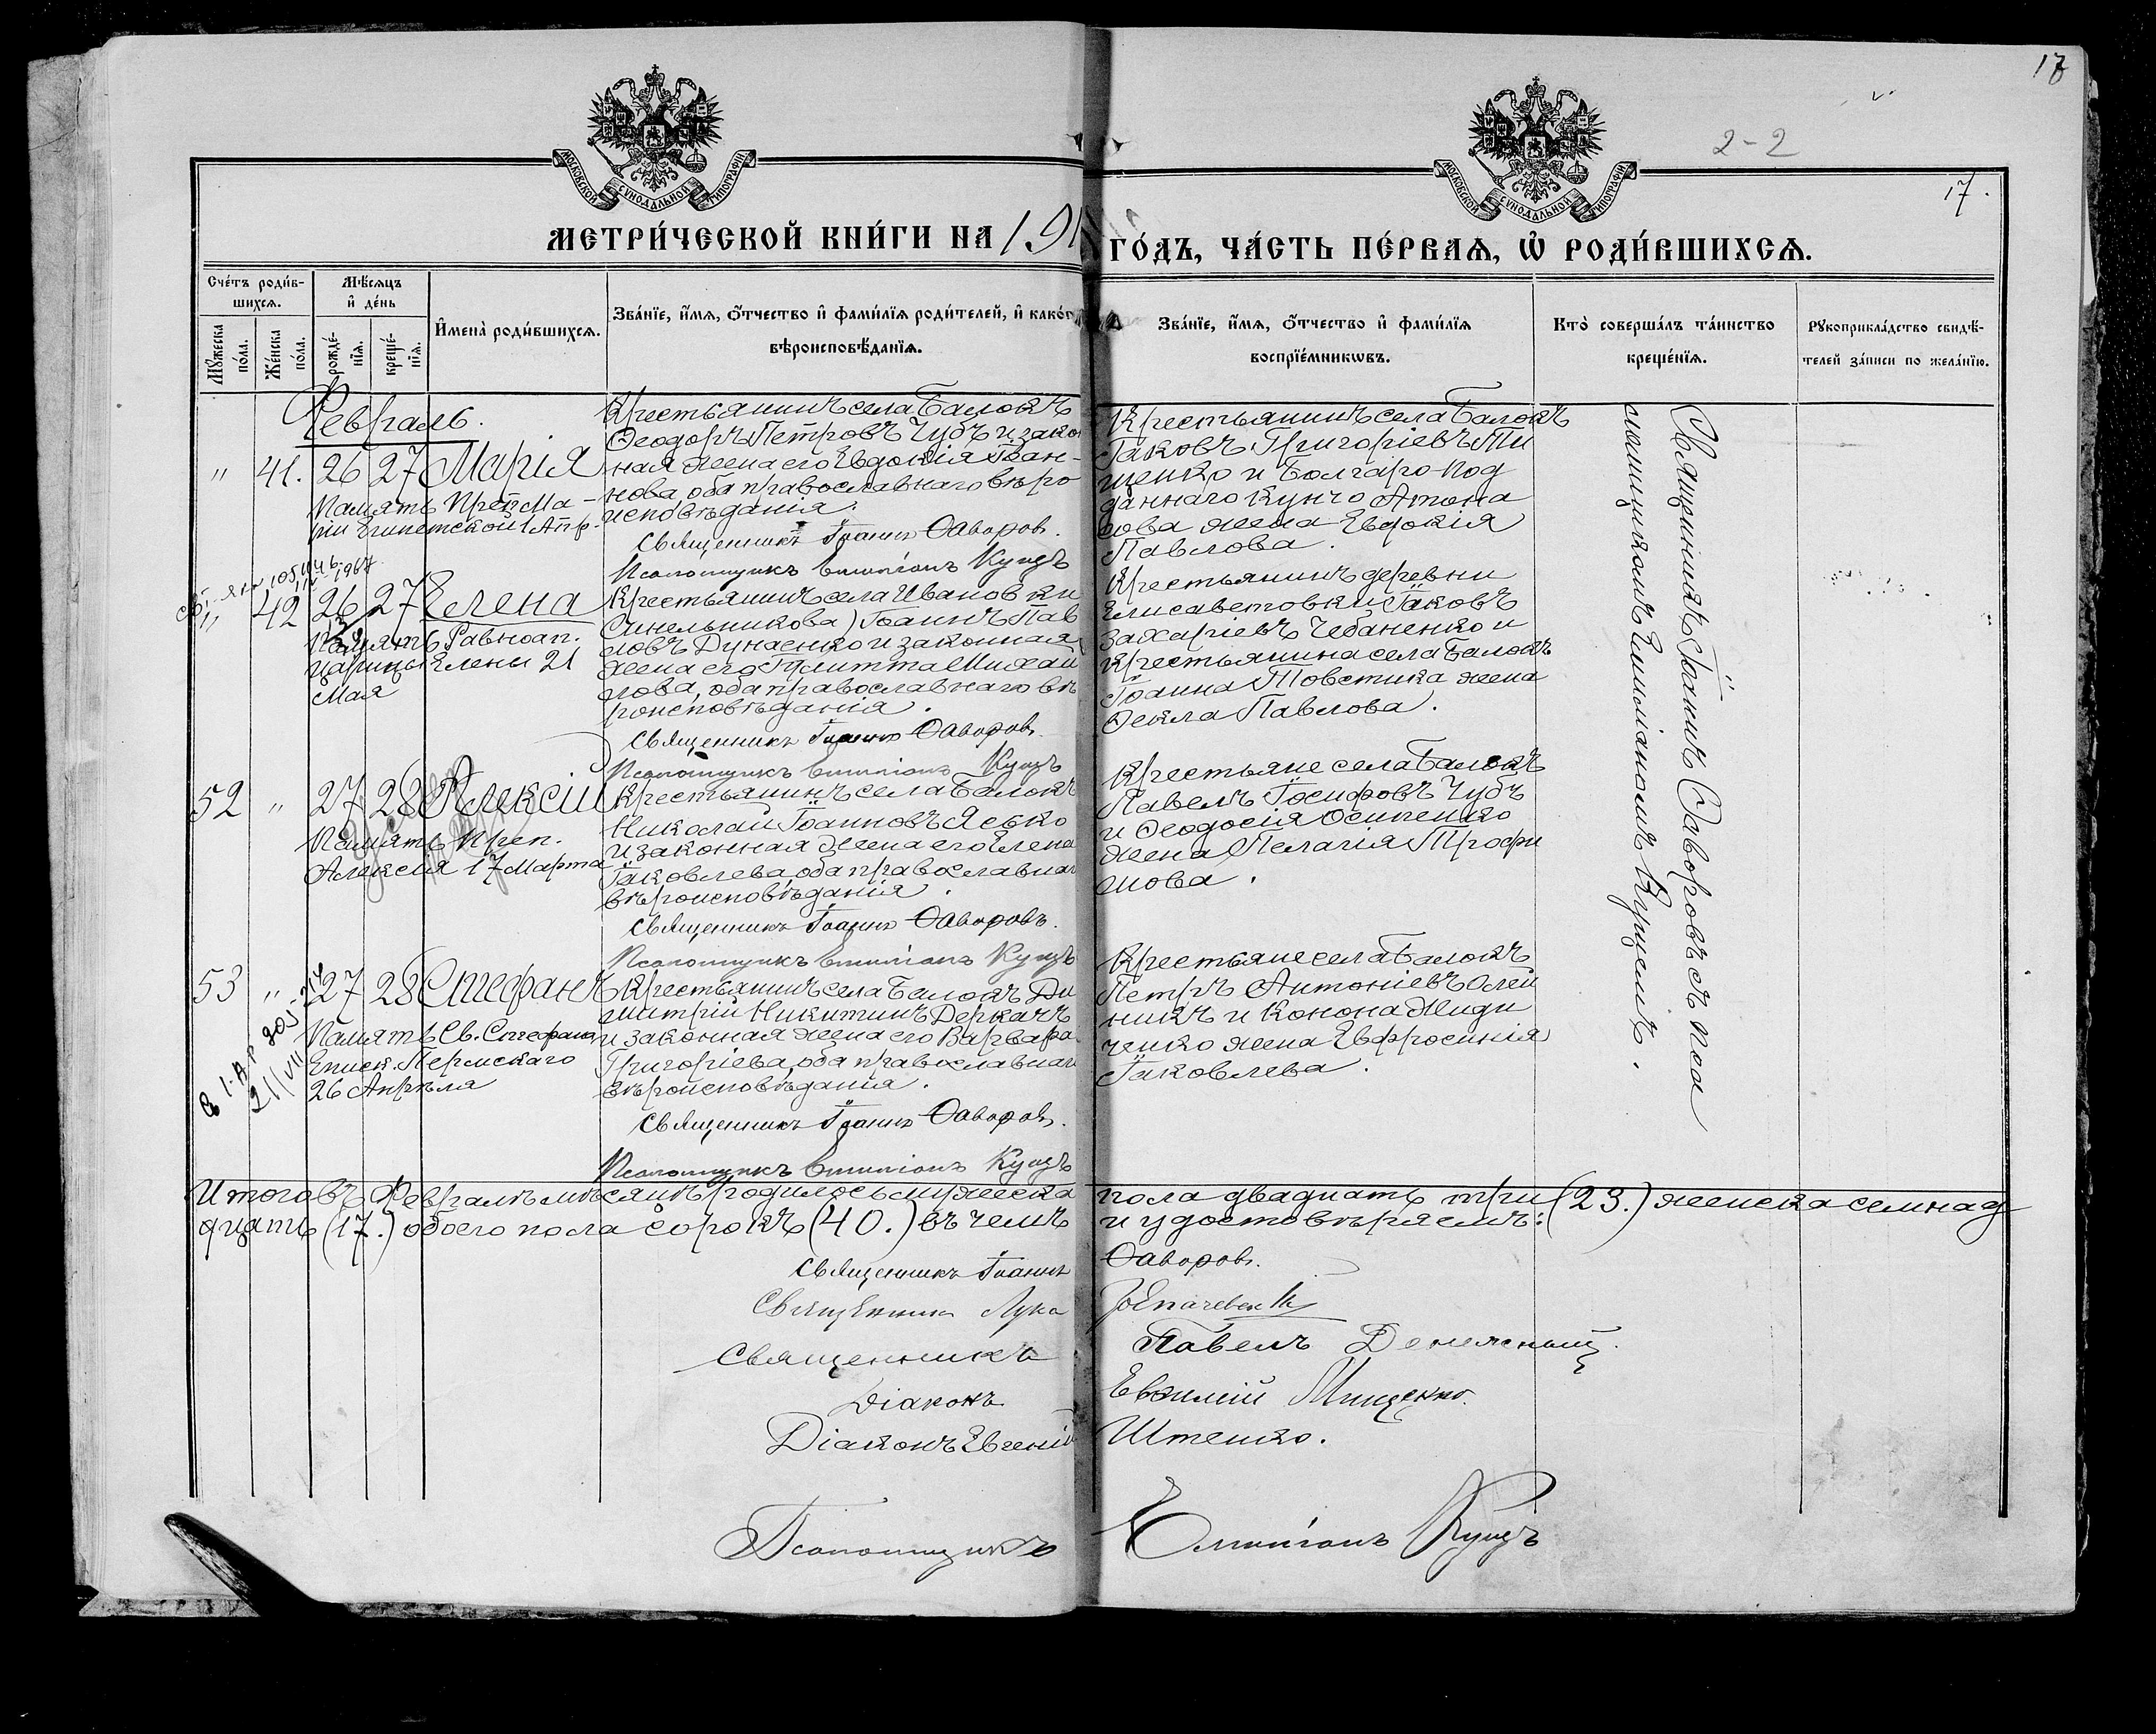 17
2-2
17.
МОСКОВСКОЙ СѴНОДАЛЬНОЙ ТИПОГРАФІИ
МОСКОВСКОЙ СѴНОДАЛЬНОЙ ТИПОГРАФІИ
МЕТРИ́ЧЕСКОЙ КНИ́ГИ НА 191
ГО́ДЪ, ЧА́СТЬ ПЕ́РВАѦ, Ѡ҆ РОДИ́ВШИХСѦ.
Счéтъ роди́в-
шихсѧ.
Мꙋ́жеска
по́ла.
Же́нска
по́ла.
Мѣ́сѧцъ
и҆ де́нь
рожде́-
нїѧ.
креще́-
нїѧ.
И҆мена̀ роди́вшихсѧ.
Зва́нїе, и҆́мѧ, ѻ҆́тчество и҆ фами́лїѧ роди́телей, и҆ како́г
вѣроисповѣ́данїѧ.
Зва́нїе, и҆́мѧ, ѻ҆́тчество и҆ фами́лїѧ
воспрїе́мникѡвъ.
Кто̀ соверша́лъ та́инство
креще́нїѧ.
Рꙋкоприкла́дство свидѣ́-
телей за́писи по жела́нїю.
Февраль.
" 41. 26 27 Марія
Память Преп. Ма-
ріи Египетской 1 Апр.
Крестьянинъ села Балокъ
Ѳеодоръ Петровъ Чубъ и закон
ная жена его Евдокія Іоан-
нова, оба православнаго вѣро
исповѣданія.
Священникъ Іоаннъ Ѳаворов.
Псаломщикъ Емиліанъ Куцъ
Крестьянинъ села Балокъ
Іаковъ Григоріевъ Ти
щенко и Болгаро-под
даннаго Кунчо Атона
сова жена Евдокія
Павлова.
Священникъ Іоаннъ Ѳаворовъ съ пса
ломщикомъ Емиліаномъ Куцемъ.
1967
" 42 26 27 Елена
Память Равноап.
царицы Елены 21
Мая
Крестьянинъ села Ивановки
Синельникова) Іоаннъ Пав
ловъ Дунаенко и законная
жена его Іулитта Михаи
лова, оба православнаго вѣ
роисповѣданія.
Священникъ Іоаннъ Ѳаворов.
Псаломщикъ Емиліанъ Куцъ
Крестьянинъ деревни
Елисаветовки Іаковъ
Захаріевъ Чебаненко и
крестьянина села Балокъ
Іоанна Товстика жена
Ѳекла Павлова.
52 " 27 28 Алексій
Память Преп.
Алексія 17 Марта
Крестьянинъ села Балокъ
Николай Іоанновъ Ясько
и законная жена его Елена
Іаковлева, оба православнаг
вѣроисповѣданія.
Священникъ Іоаннъ Ѳаворовъ.
Псаломщикъ Емиліанъ Куцъ
Крестьяне села Балокъ
Павелъ Іосифовъ Чубъ
и Ѳеодосія Осипенко
жена Пелагія Трофи
мова.
53 " 27 28 Стефанъ
Память Св. Стефана,
Еписк. Пермскаго
26 Апрѣля
Крестьянинъ села Балокъ Ди
митрій Никитинъ Деркачъ
и законная жена его Варвара
Григоріева, оба православнаг
вѣроисповѣданія.
Священникъ Іоаннъ Ѳаворов.
Псаломщикъ Емиліанъ Куцъ
Крестьяне села Балокъ
Петръ Антоніевъ Олей
никъ и Конона Жиди
ченко жена Евфросинія
Іаковлева.
Итого въ Февралѣ мѣсяцѣ родилось мужеска пола двадцать три (23.) женска семнад
цать (17.) обоего пола сорокъ (40.) въ чемъ и удостовѣряемъ:
Священникъ Іоаннъ Ѳаворов.
Священникъ Лука
Священникъ Павелъ
Діаконъ Мищенко.
Діаконъ Евгеній Штенко.
Псаломщикъ Емиліанъ Куцъ